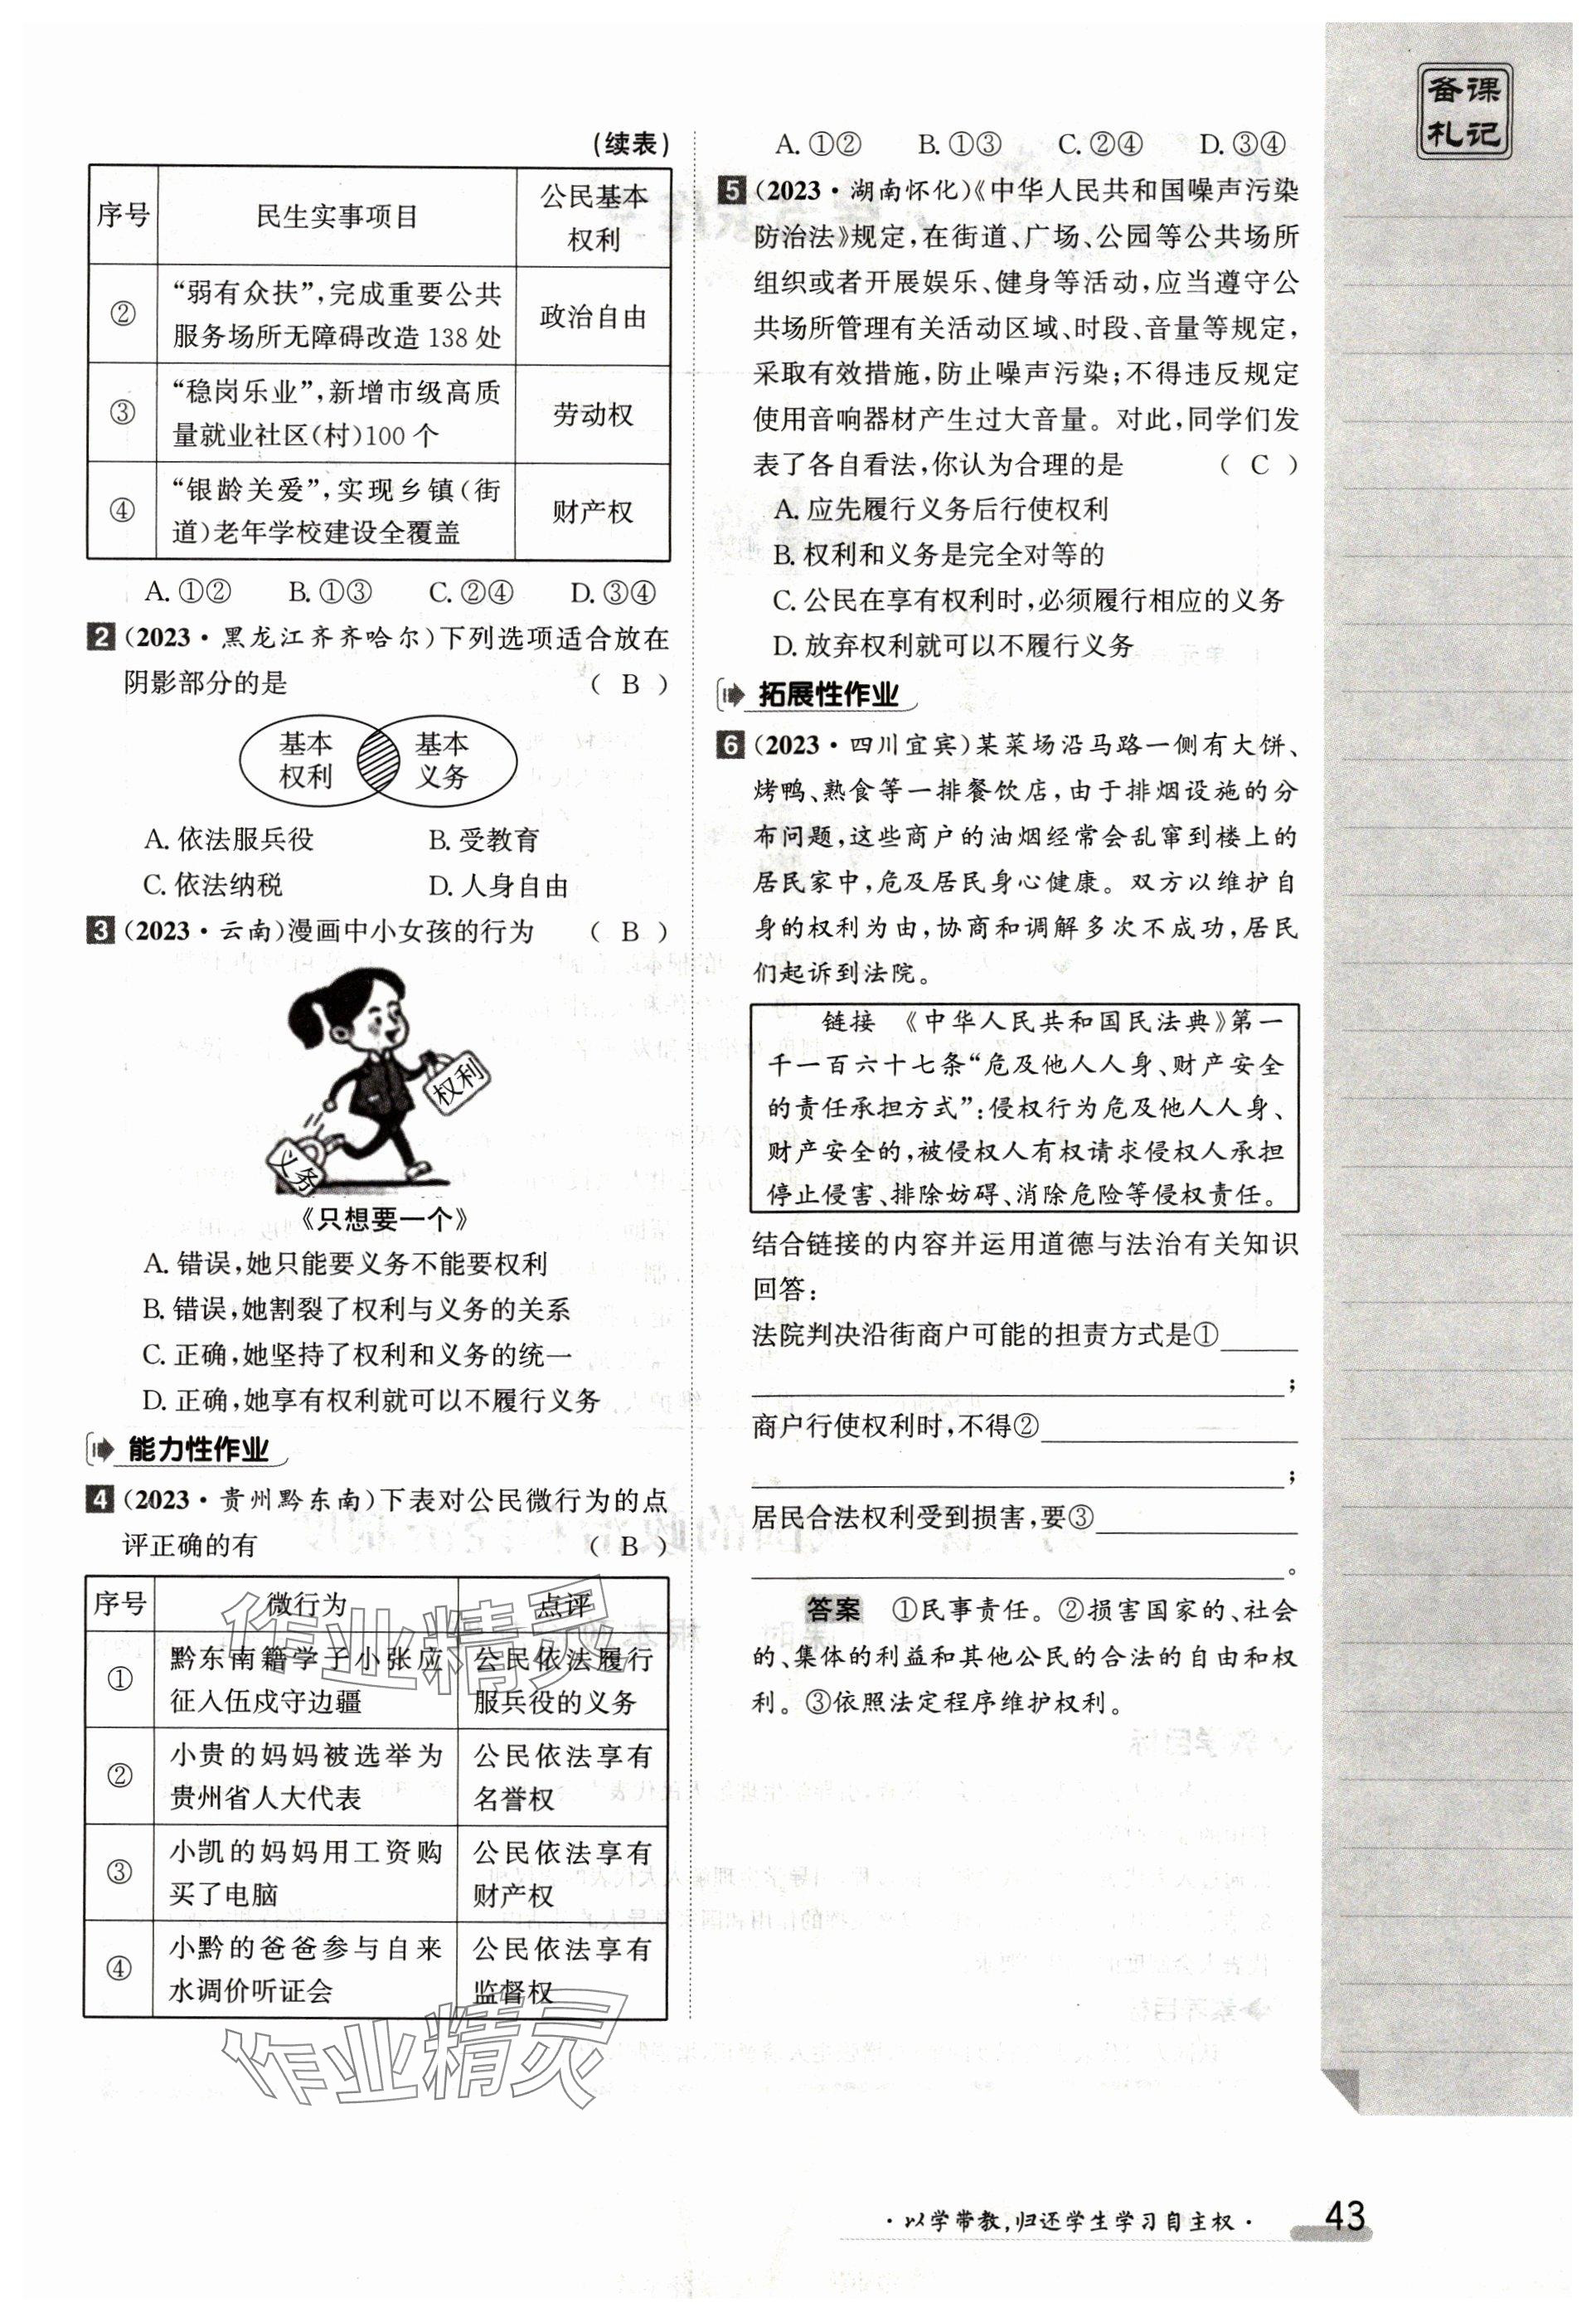 备课
札记
(续表)
序号
民生实事项目
公民基本
权利
②
“弱有众扶”,完成重要公共
服务场所无障碍改造138处
政治自由
③
“稳岗乐业”,新增市级高质
量就业社区(村)100个
劳动权
④
“银龄关爱”,实现乡镇(街
道)老年学校建设全覆盖
财产权
A.①② B.①③ C.②④ D.③④
2 (2023·黑龙江齐齐哈尔)下列选项适合放在
阴影部分的是 ( B )
基本
权利
基本
义务
A.依法服兵役 B.受教育
C.依法纳税 D.人身自由
3 (2023·云南)漫画中小女孩的行为 ( B )
权利
义务
《只想要一个》
A.错误,她只能要义务不能要权利
B.错误,她割裂了权利与义务的关系
C.正确,她坚持了权利和义务的统一
D.正确,她享有权利就可以不履行义务
能力性作业
4 (2023·贵州黔东南)下表对公民微行为的点
评正确的有 ( B )
序号 微行为 点评
①
黔东南籍学子小张应
征入伍戍守边疆
公民依法履行
服兵役的义务
②
小贵的妈妈被选举为
贵州省人大代表
公民依法享有
名誉权
③
小凯的妈妈用工资购
买了电脑
公民依法享有
财产权
④
小黔的爸爸参与自来
水调价听证会
公民依法享有
监督权
作业精灵
作业精灵
A.①② B.①③ C.②④ D.③④
5 (2023·湖南怀化)《中华人民共和国噪声污染
防治法》规定,在街道、广场、公园等公共场所
组织或者开展娱乐、健身等活动,应当遵守公
共场所管理有关活动区域、时段、音量等规定,
采取有效措施,防止噪声污染;不得违反规定
使用音响器材产生过大音量。对此,同学们发
表了各自看法,你认为合理的是 ( C )
A.应先履行义务后行使权利
B.权利和义务是完全对等的
C.公民在享有权利时,必须履行相应的义务
D.放弃权利就可以不履行义务
拓展性作业
6 (2023·四川宜宾)某菜场沿马路一侧有大饼、
烤鸭、熟食等一排餐饮店,由于排烟设施的分
布问题,这些商户的油烟经常会乱窜到楼上的
居民家中,危及居民身心健康。双方以维护自
身的权利为由,协商和调解多次不成功,居民
们起诉到法院。
链接 《中华人民共和国民法典》第一
千一百六十七条“危及他人人身、财产安全
的责任承担方式”:侵权行为危及他人人身、
财产安全的,被侵权人有权请求侵权人承担
停止侵害、排除妨碍、消除危险等侵权责任。
结合链接的内容并运用道德与法治有关知识
回答:
法院判决沿街商户可能的担责方式是①______
______;
商户行使权利时,不得②______
______;
居民合法权利受到损害,要③______
______。
答案 ①民事责任。②损害国家的、社会
的、集体的利益和其他公民的合法的自由和权
利。③依照法定程序维护权利。
·以学带教,归还学生学习自主权·
43